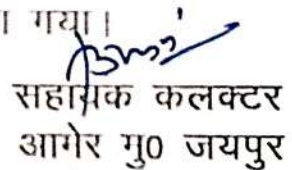 । गया।
सहायक कलक्टर
आमेर मु0 जयपुर